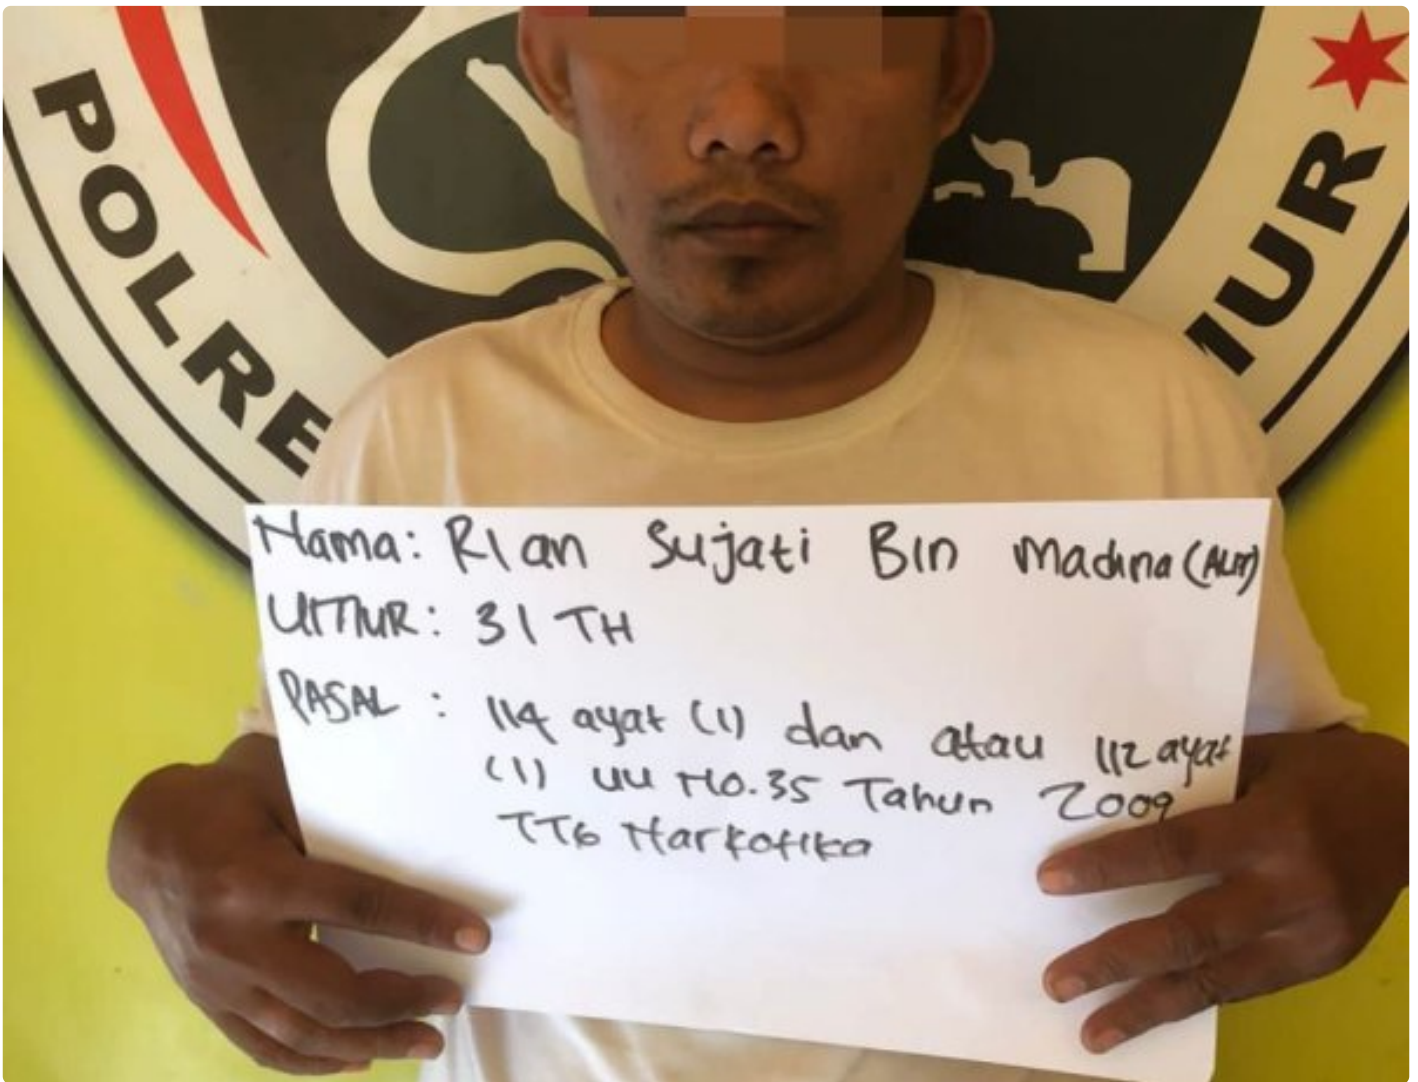 POLRE
MUR
Nama: Rian Sujati Bin Madina (Alm)
UMUR: 31 TH
PASAL : 114 ayat (1) dan atau 112 ayat
(1) UU NO.35 Tahun 2009
TTG Narkotika